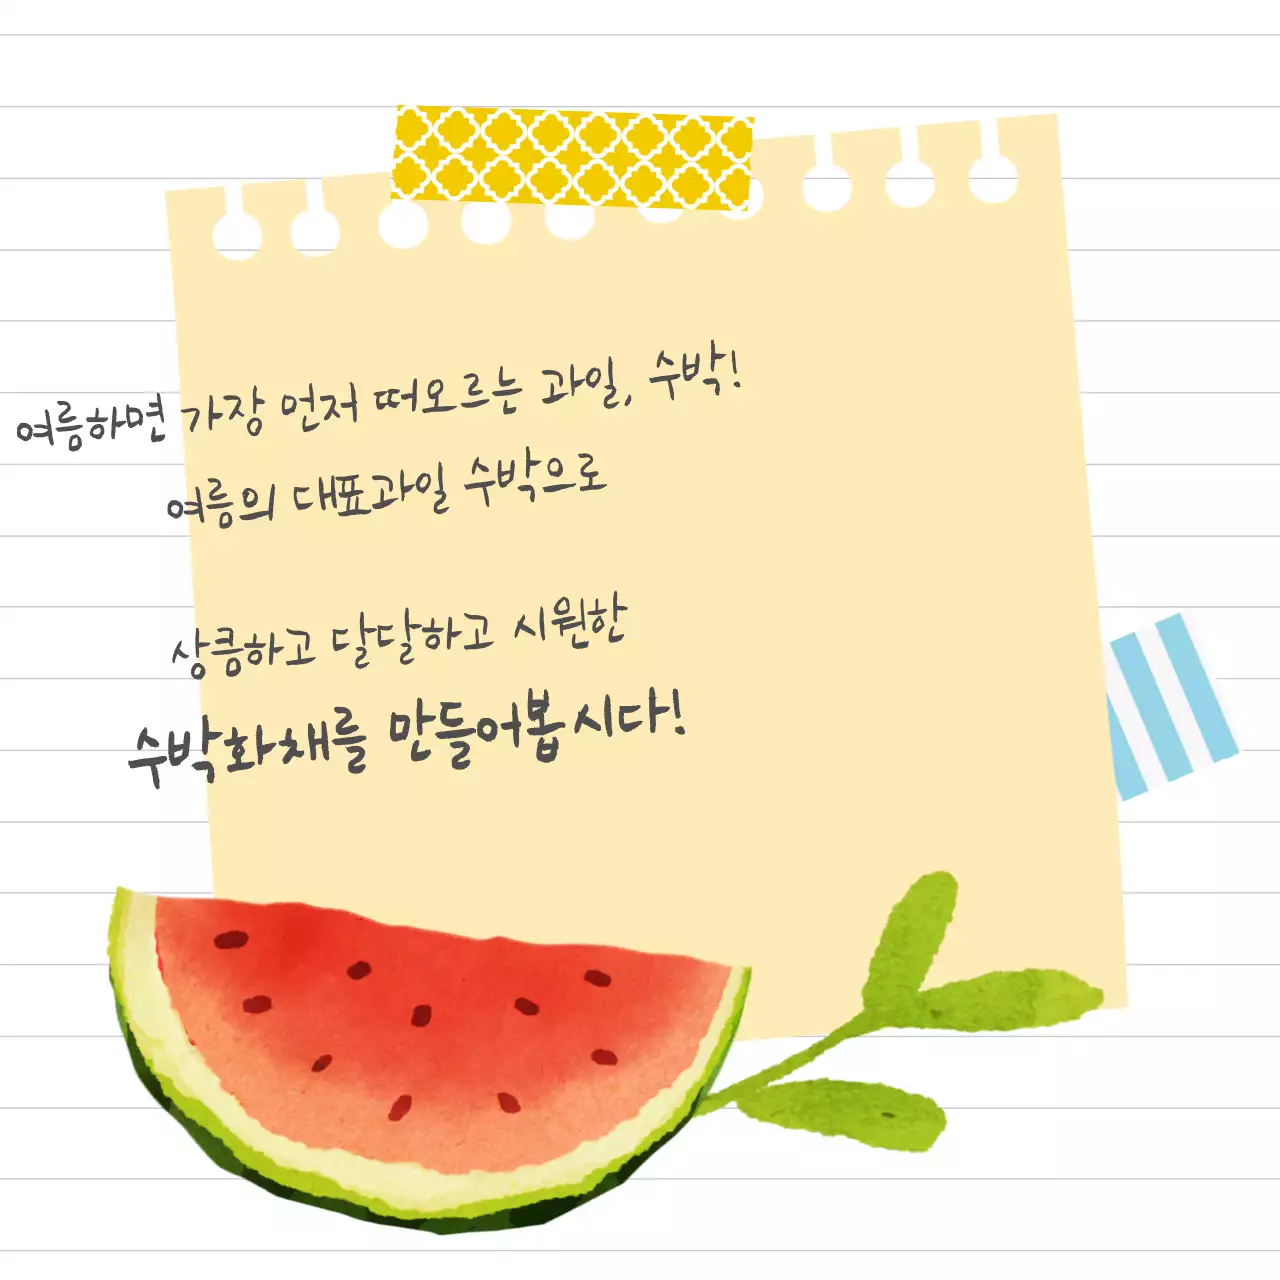 여름하면 가장 먼저 떠오르는 과일, 수박!
여름의 대표과일 수박으로
상큼하고 달달하고 시원한
수박화채를 만들어봅시다!